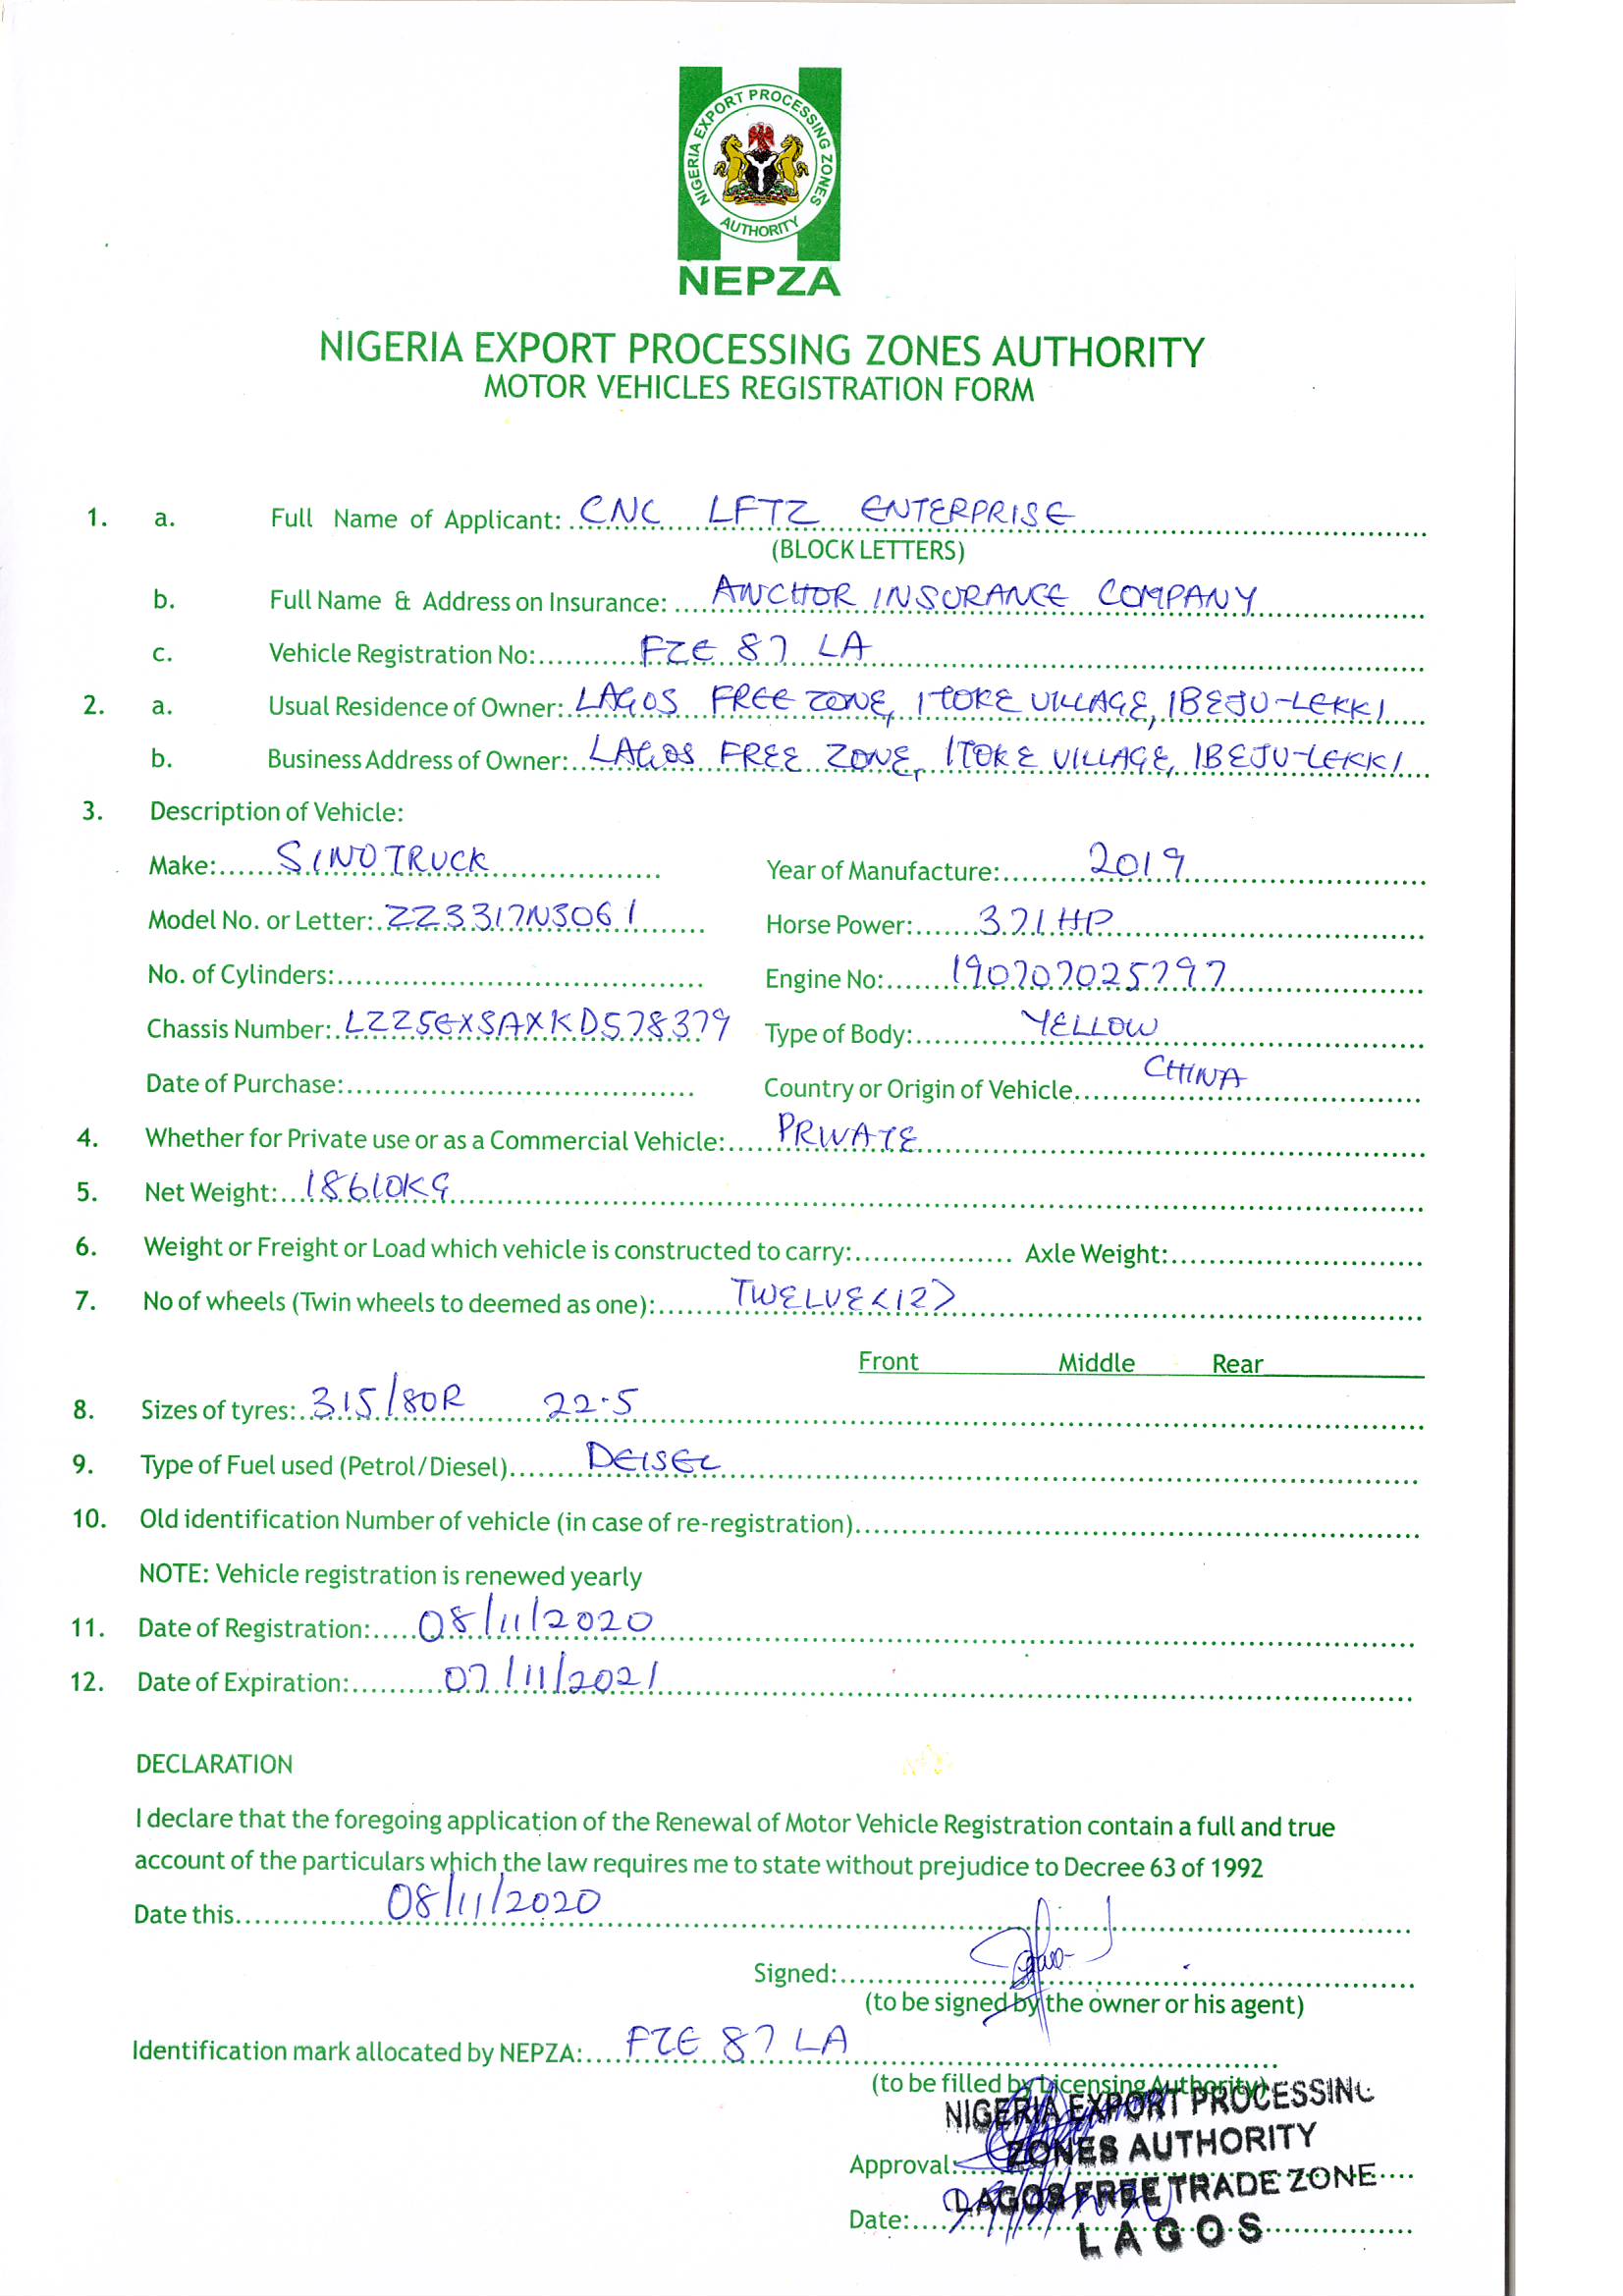 NIGERIA EXPORT PROCESSING ZONES
AUTHORITY
NEPZA
NIGERIA EXPORT PROCESSING ZONES AUTHORITY
MOTOR VEHICLES REGISTRATION FORM
1. a. Full Name of Applicant: CNC LFTZ ENTERPRISE
(BLOCK LETTERS)
b. Full Name & Address on Insurance: ANCHOR INSURANCE COMPANY
c. Vehicle Registration No: FZE 87 LA
2. a. Usual Residence of Owner: LAGOS FREE ZONE, ITOKE VILLAGE, IBEJU-LEKKI
b. Business Address of Owner: LAGOS FREE ZONE, ITOKE VILLAGE, IBEJU-LEKKI
3. Description of Vehicle:
Make: SINOTRUCK Year of Manufacture: 2019
Model No. or Letter: ZZ3317N3061 Horse Power: 371 HP
No. of Cylinders: Engine No: 190707025797
Chassis Number: LZZ5EXSAXKD578379 Type of Body: YELLOW
Date of Purchase: Country or Origin of Vehicle CHINA
4. Whether for Private use or as a Commercial Vehicle: PRIVATE
5. Net Weight: 18610KG
6. Weight or Freight or Load which vehicle is constructed to carry: Axle Weight:
7. No of wheels (Twin wheels to deemed as one): TWELVE <12>
Front Middle Rear
8. Sizes of tyres: 315/80R 22.5
9. Type of Fuel used (Petrol/Diesel) DEISEL
10. Old identification Number of vehicle (in case of re-registration)
NOTE: Vehicle registration is renewed yearly
11. Date of Registration: 08/11/2020
12. Date of Expiration: 07/11/2021
DECLARATION
I declare that the foregoing application of the Renewal of Motor Vehicle Registration contain a full and true
account of the particulars which the law requires me to state without prejudice to Decree 63 of 1992
Date this 08/11/2020
Signed:
(to be signed by the owner or his agent)
Identification mark allocated by NEPZA: FZE 87 LA
(to be filled by Licensing Authority)
NIGERIA EXPORT PROCESSING
ZONES AUTHORITY
Approval:
LAGOS FREE TRADE ZONE
Date:
LAGOS